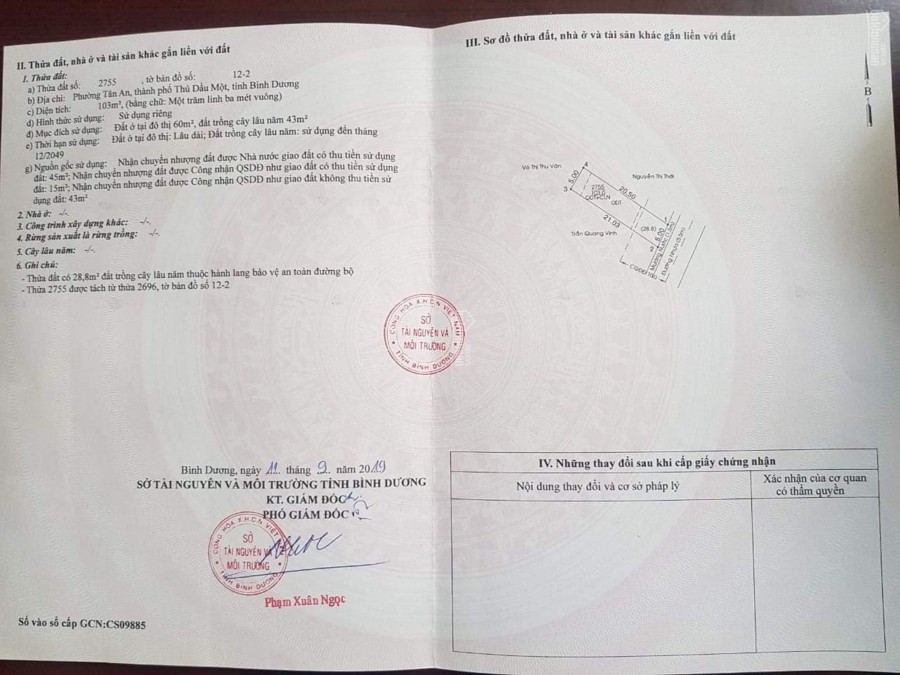 II. Thửa đất, nhà ở và tài sản khác gắn liền với đất
1. Thửa đất:
a) Thửa đất số: 2755 , tờ bản đồ số: 12-2
b) Địa chỉ: Phường Tân An, thành phố Thủ Dầu Một, tỉnh Bình Dương
c) Diện tích: 103m², (bằng chữ: Một trăm linh ba mét vuông)
d) Hình thức sử dụng: Sử dụng riêng
đ) Mục đích sử dụng: Đất ở tại đô thị 60m², đất trồng cây lâu năm 43m²
e) Thời hạn sử dụng: Đất ở tại đô thị: Lâu dài; Đất trồng cây lâu năm: sử dụng đến tháng
12/2049
g) Nguồn gốc sử dụng: Nhận chuyển nhượng đất được Nhà nước giao đất có thu tiền sử dụng
đất: 45m²; Nhận chuyển nhượng đất được Công nhận QSDĐ như giao đất có thu tiền sử dụng
đất: 15m²; Nhận chuyển nhượng đất được Công nhận QSDĐ như giao đất không thu tiền sử
dụng đất: 43m²
2. Nhà ở: -/-
3. Công trình xây dựng khác: -/-
4. Rừng sản xuất là rừng trồng: -/-
5. Cây lâu năm: -/-
6. Ghi chú:
- Thửa đất có 28,8m² đất trồng cây lâu năm thuộc hành lang bảo vệ an toàn đường bộ
- Thửa 2755 được tách từ thửa 2696, tờ bản đồ số 12-2
CỘNG HÒA X.H.C.N VIỆT NAM
SỞ
TÀI NGUYÊN VÀ
MÔI TRƯỜNG
TỈNH BÌNH DƯƠNG
Bình Dương, ngày 11 tháng 9 năm 2019
SỞ TÀI NGUYÊN VÀ MÔI TRƯỜNG TỈNH BÌNH DƯƠNG
KT. GIÁM ĐỐC
PHÓ GIÁM ĐỐC
CỘNG HÒA X.H.C.N VIỆT
SỞ
TÀI NGUYÊN VÀ
MÔI TRƯỜNG
TỈNH BÌNH DƯƠNG
Phạm Xuân Ngọc
Số vào sổ cấp GCN:CS09885
III. Sơ đồ thửa đất, nhà ở và tài sản khác gắn liền với đất
B
Võ Thị Thu Vân
Nguyễn Thị Thới
5.00
4
3
20.50
2755
ODT
21.03
Trần Quang Vinh
(28.8)
1
2
5.00
Mương nước (3.0m)
IV. Những thay đổi sau khi cấp giấy chứng nhận
Nội dung thay đổi và cơ sở pháp lý
Xác nhận của cơ quan
có thẩm quyền